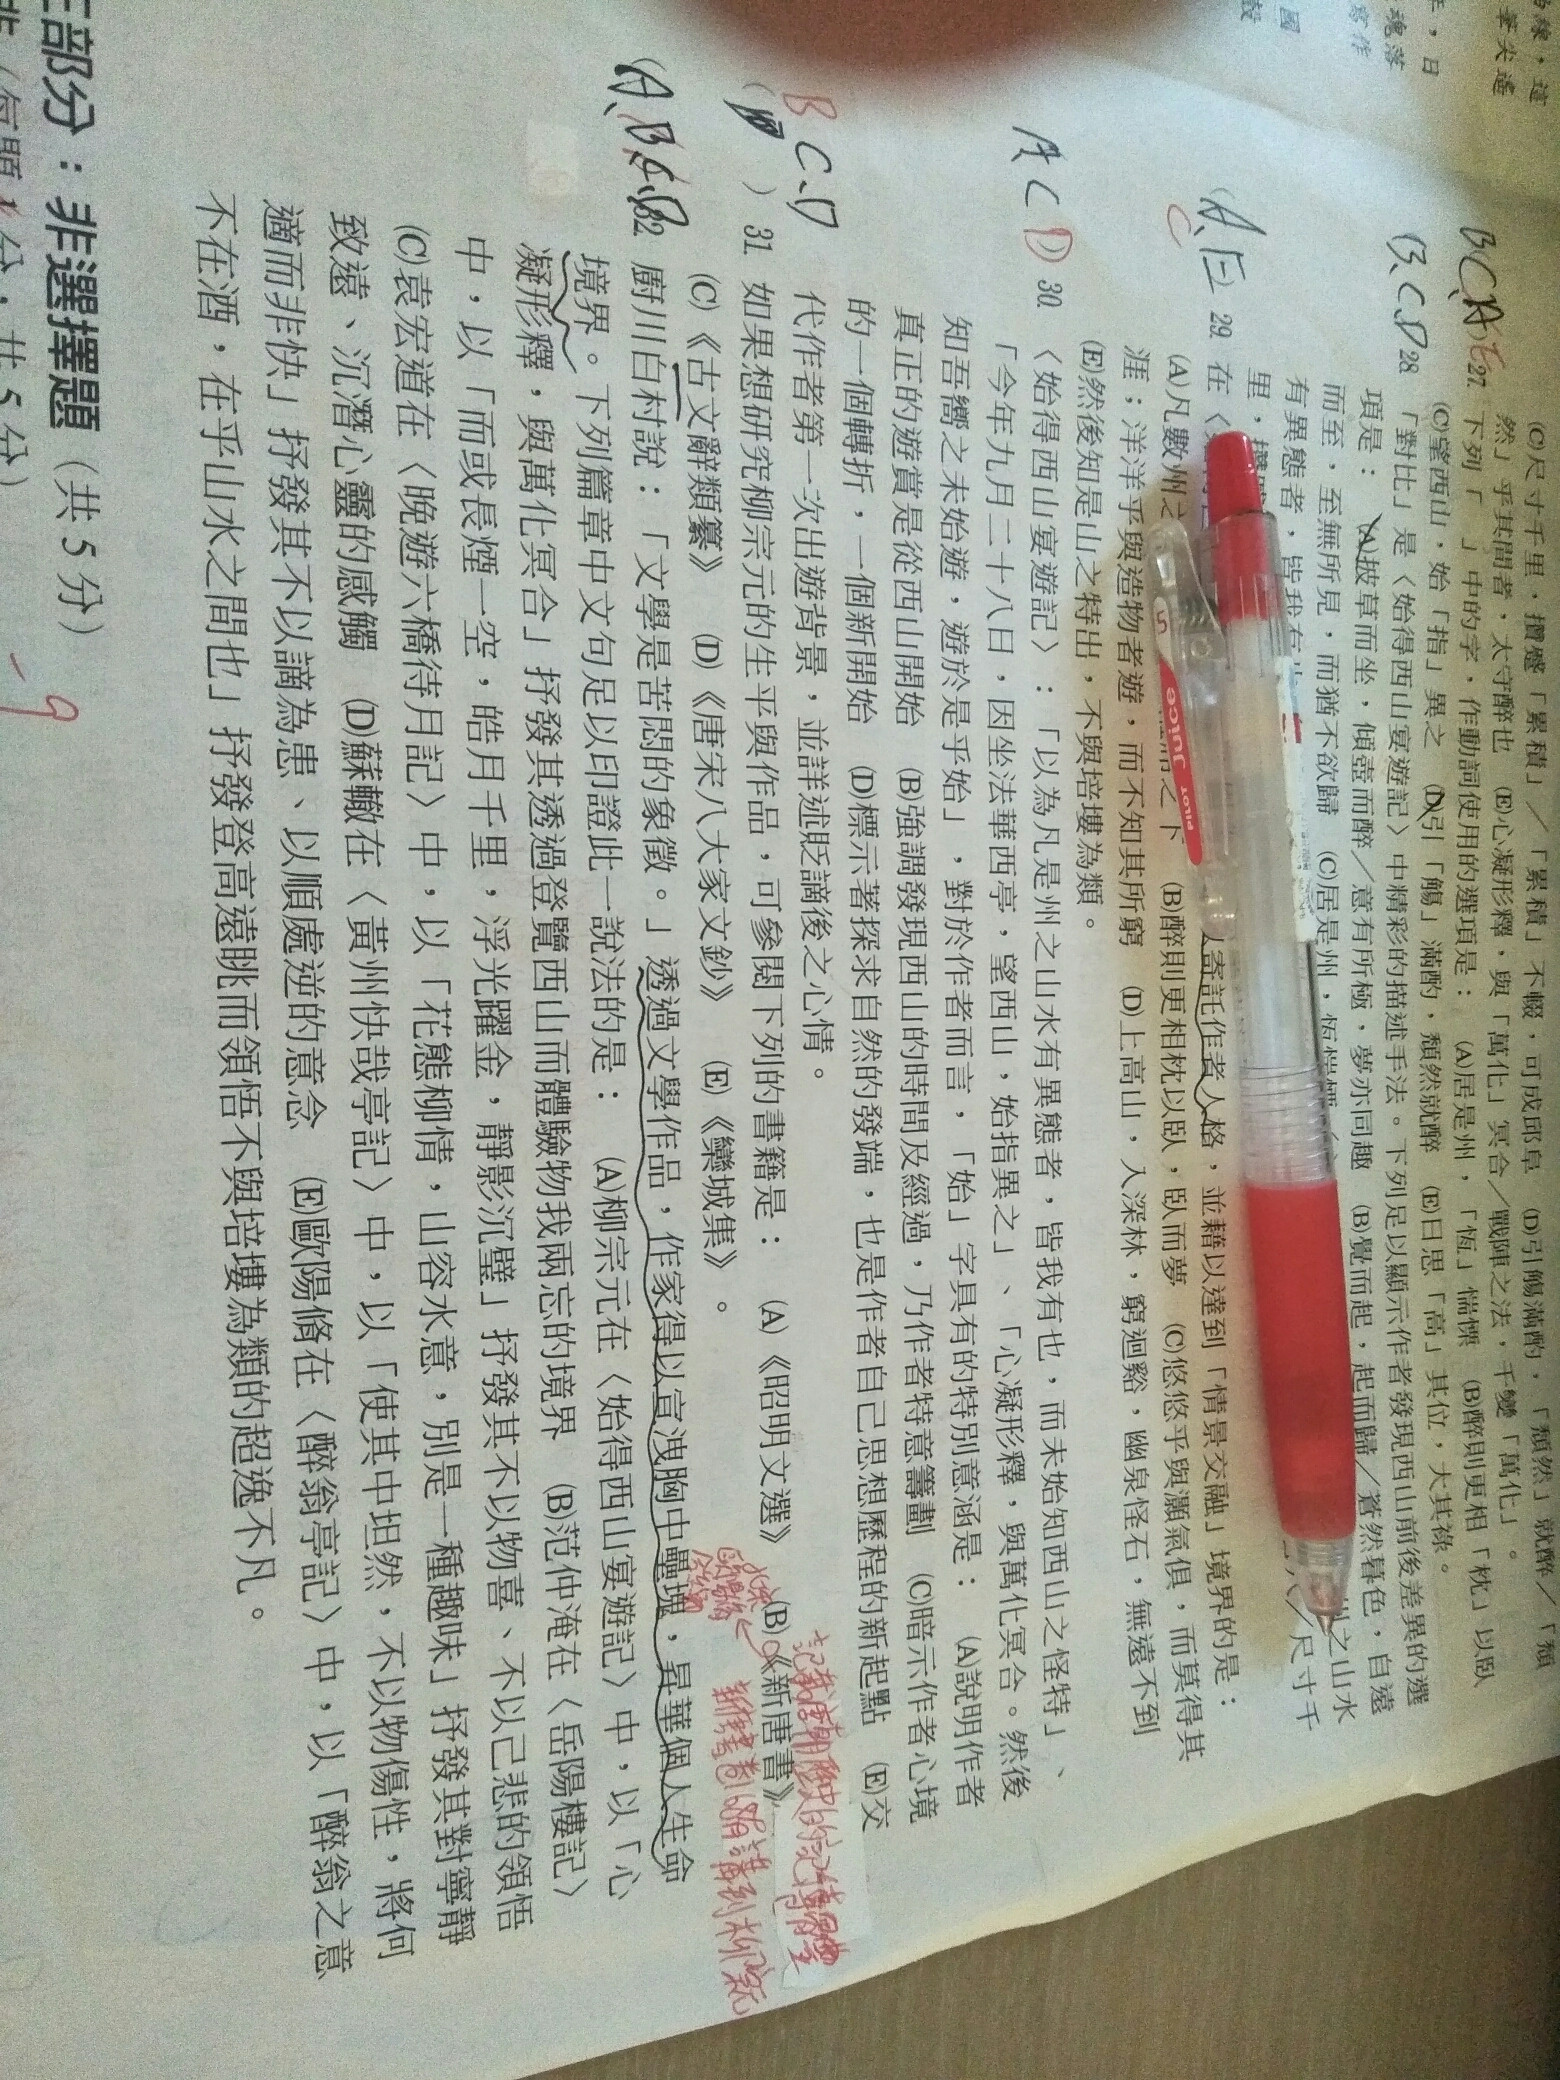 (C)尺寸千里，攢蹙「累積」／「累積」不輟，可成邱阜　(D)引觴滿酌，「頹然」就醉／「頹
然」乎其間者，太守醉也　(E)心凝形釋，與「萬化」冥合／戰陣之法，千變「萬化」。
BCA 27. 下列「　」中的字，作動詞使用的選項是：　(A)居是州，「恆」惴慄　(B)醉則更相「枕」以臥
(C)望西山，始「指」異之　(D)引「觴」滿酌，頹然就醉　(E)日思「高」其位，大其祿。
B、C、D 28. 「對比」是〈始得西山宴遊記〉中精彩的描述手法。下列足以顯示作者發現西山前後差異的選
項是：　(A)披草而坐，傾壺而醉／意有所極，夢亦同趣　(B)覺而起，起而歸／蒼然暮色，自遠
而至，至無所見，而猶不欲歸　(C)居是州，恆惴慄
之山水
有異態者，皆我有
尺寸千
里，攢
(A、E) C 29. 在〈
寄託作者人格，並藉以達到「情景交融」境界的是：
(A)凡數州之
之下　(B)醉則更相枕以臥，臥而夢　(C)悠悠乎與灝氣俱，而莫得其
涯；洋洋乎與造物者遊，而不知其所窮　(D)上高山，入深林，窮迴谿，幽泉怪石，無遠不到
(E)然後知是山之特出，不與培塿為類。
A、C D 30. 〈始得西山宴遊記〉：「以為凡是州之山水有異態者，皆我有也，而未始知西山之怪特」、
「今年九月二十八日，因坐法華西亭，望西山，始指異之」、「心凝形釋，與萬化冥合。然後
知吾嚮之未始遊，遊於是乎始」，對於作者而言，「始」字具有的特別意涵是：　(A)說明作者
真正的遊賞是從西山開始　(B)強調發現西山的時間及經過，乃作者特意籌劃　(C)暗示作者心境
的一個轉折，一個新開始　(D)標示著探求自然的發端，也是作者自己思想歷程的新起點　(E)交
代作者第一次出遊背景，並詳述貶謫後之心情。
B C、D 31. 如果想研究柳宗元的生平與作品，可參閱下列的書籍是：　(A)《昭明文選》　(B)《新唐書》
(C)《古文辭類纂》　(D)《唐宋八大家文鈔》　(E)《欒城集》。
32. 廚川白村說：「文學是苦悶的象徵。」透過文學作品，作家得以宣洩胸中壘塊，昇華個人生命
境界。下列篇章中文句足以印證此一說法的是：　(A)柳宗元在〈始得西山宴遊記〉中，以「心
凝形釋，與萬化冥合」抒發其透過登覽西山而體驗物我兩忘的境界　(B)范仲淹在〈岳陽樓記〉
中，以「而或長煙一空，皓月千里，浮光躍金，靜影沉璧」抒發其不以物喜、不以己悲的領悟
(C)袁宏道在〈晚遊六橋待月記〉中，以「花態柳情，山容水意，別是一種趣味」抒發其對寧靜
致遠、沉潛心靈的感觸　(D)蘇轍在〈黃州快哉亭記〉中，以「使其中坦然，不以物傷性，將何
適而非快」抒發其不以謫為患、以順處逆的意念　(E)歐陽脩在〈醉翁亭記〉中，以「醉翁之意
不在酒，在乎山水之間也」抒發登高遠眺而領悟不與培塿為類的超逸不凡。
部分：非選擇題（共５分）
-9
PILOT
Juice